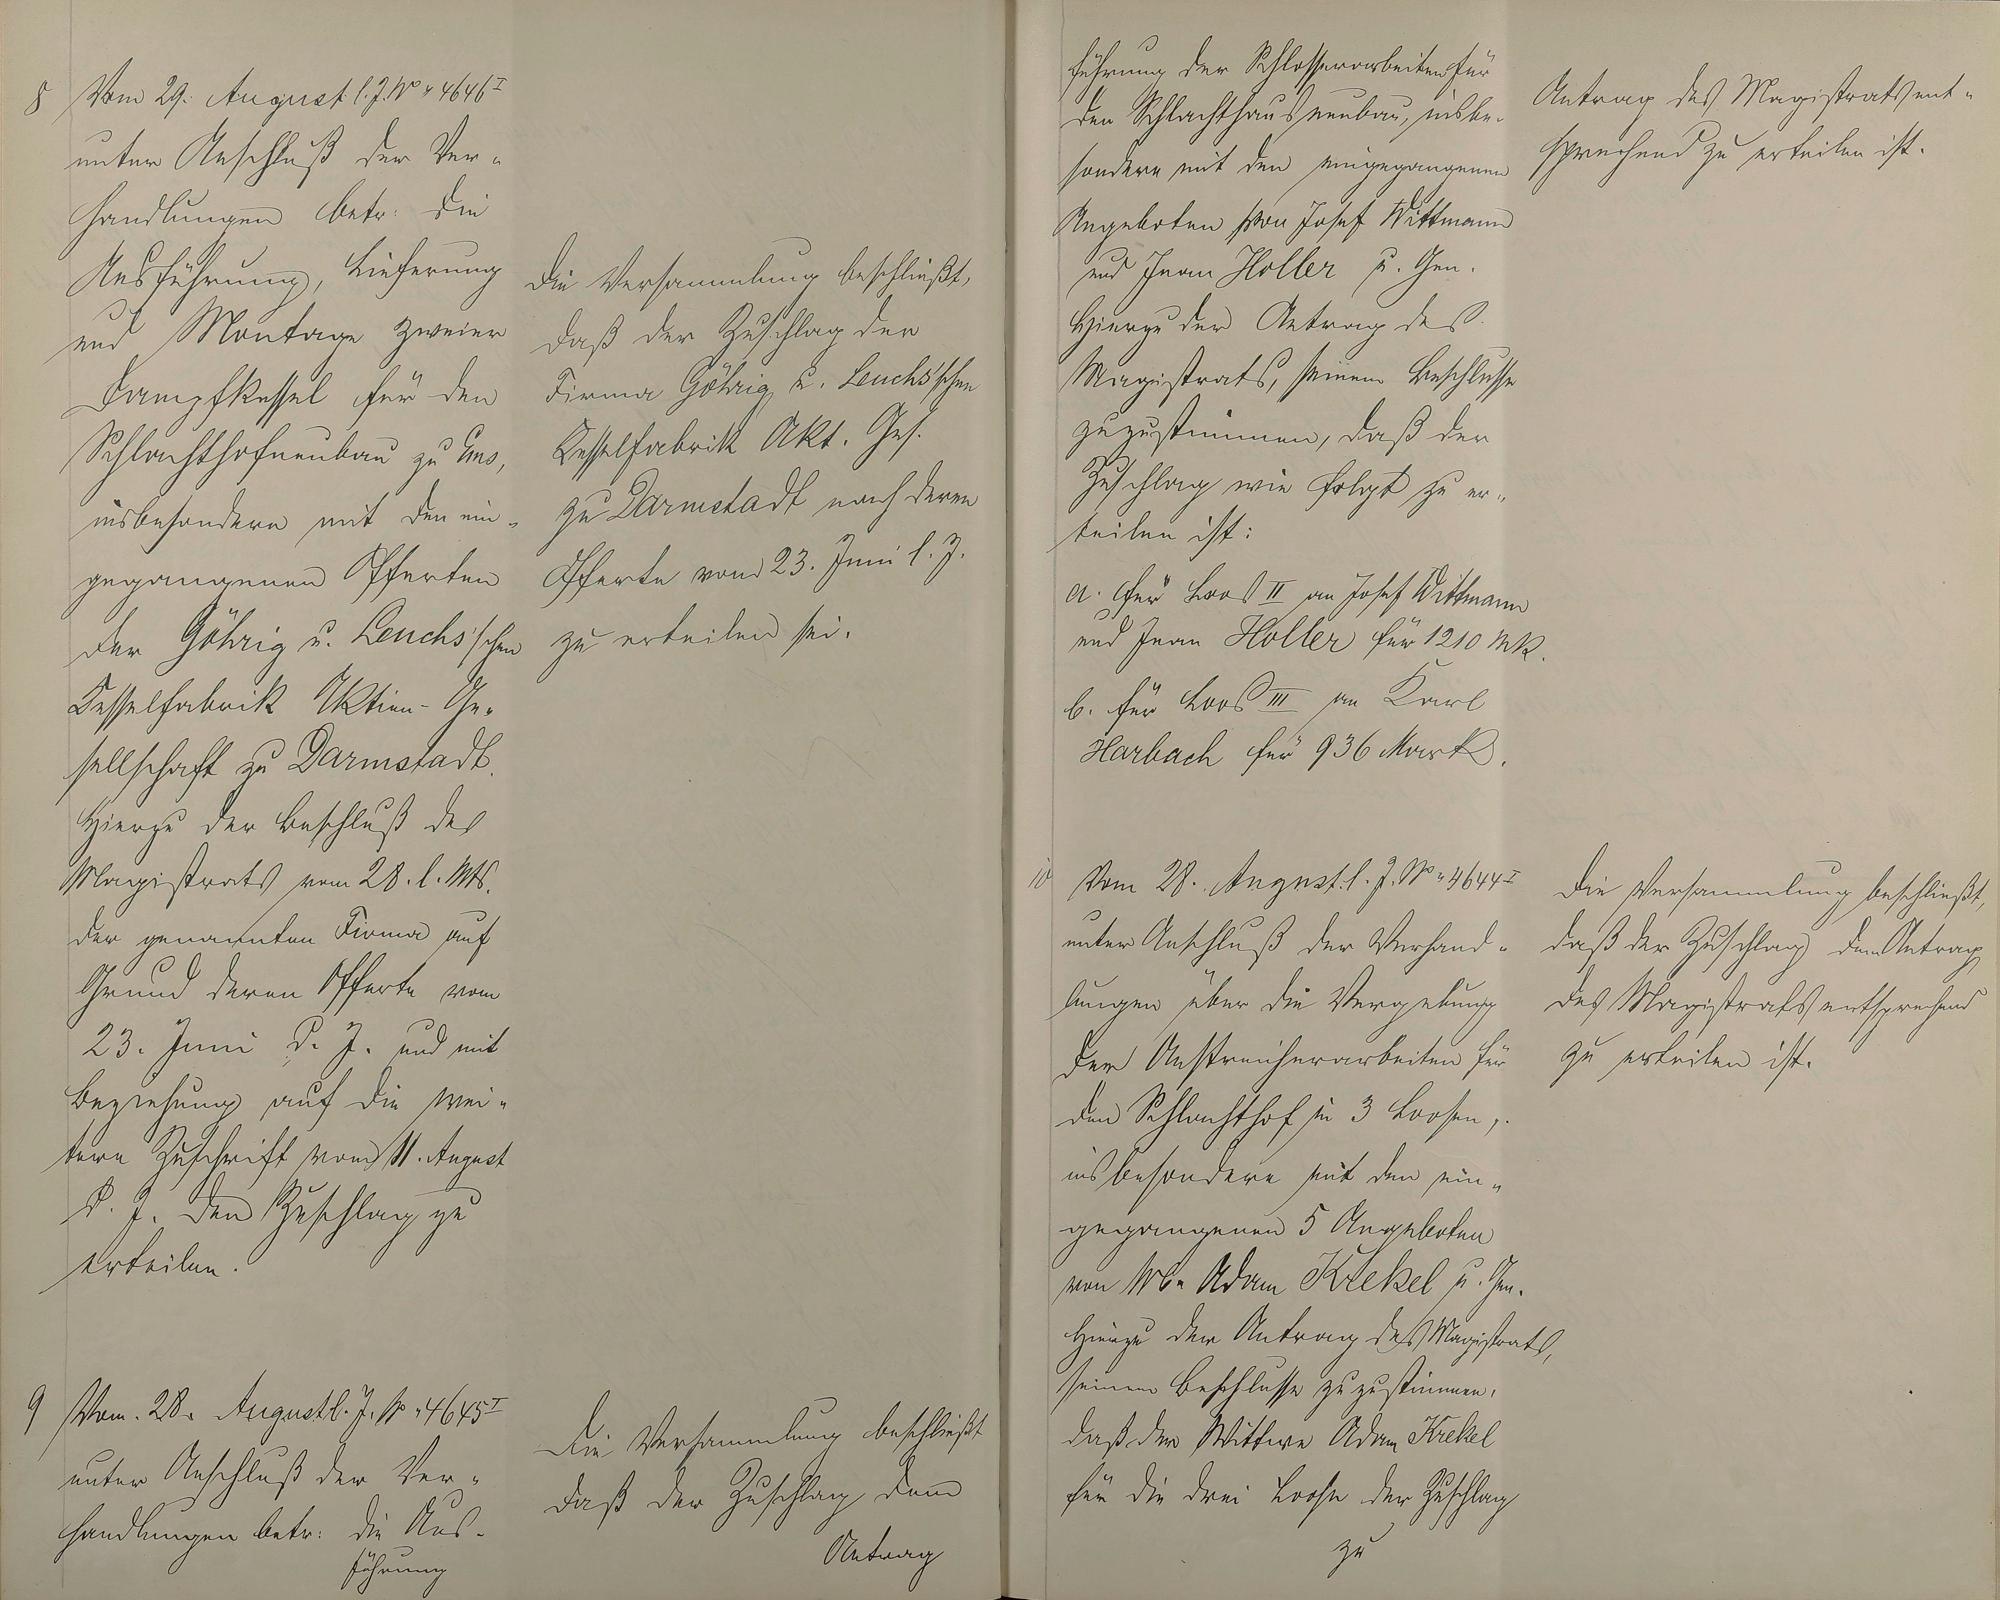 8 Vom 29. August l. J. No 4646 I
unter Anschluß der Ver-
handlungen betr. die
Ausführung, Lieferung
und Montage zweier
Dampfkessel für den
Schlachthofneubau zu Ems,
insbesondere mit den ein-
gegangenen Offerten
der Göhrig u. Leuchs'schen
Kesselfabrik Aktien-Ge-
sellschaft zu Darmstadt.
Hierzu der Beschluß des
Magistrats vom 28. l. Mts.
der genannten Firma auf
Grund deren Offerte vom
23. Juni d. J. und mit
Beziehung auf die wei-
tere Zuschrift vom 11. August
d. J. den Zuschlag zu
erteilen.
Die Versammlung beschließt,
daß der Zuschlag der
Firma Göhrig u. Leuchs'schen
Kesselfabrik Akt. Ges.
zu Darmstadt nach deren
Offerte vom 23. Juni l. J.
zu erteilen sei.
9 Vom 28. August l. J. No 4645 I
unter Anschluß der Ver-
handlungen betr: die Aus-
führung
Die Versammlung beschließt
daß der Zuschlag dem
Antrag
führung der Schlosserarbeiten für
den Schlachthausneubau, insbe-
sondere mit den eingegangenen
Angeboten von Josef Wittmann
und Jean Holler u. Gen.
Hierzu der Antrag des
Magistrats, seinem Beschlusse
zuzustimmen, daß der
Zuschlag wie folgt zu er-
teilen ist:
a. für Loos II an Josef Wittmann
und Jean Holler für 1210 Mk.
b. für Loos III an Karl
Harbach für 936 Mark.
Antrag des Magistrats ent-
sprechend zu erteilen ist.
10 Vom 28. August l. J. No 4644 I
unter Anschluß der Verhand-
lungen über die Vergebung
der Anstreicherarbeiten für
den Schlachthof in 3 Loosen,
insbesondere mit den ein-
gegangenen 5 Angeboten
von Ww. Adam Krekel u. Gen.
Hierzu der Antrag des Magistrats,
seinem Beschlusse zuzustimmen,
daß der Wittwe Adam Krekel
für die drei Loose der Zuschlag
zu
Die Versammlung beschließt,
daß der Zuschlag dem Antrag
des Magistrats entsprechend
zu erteilen ist.